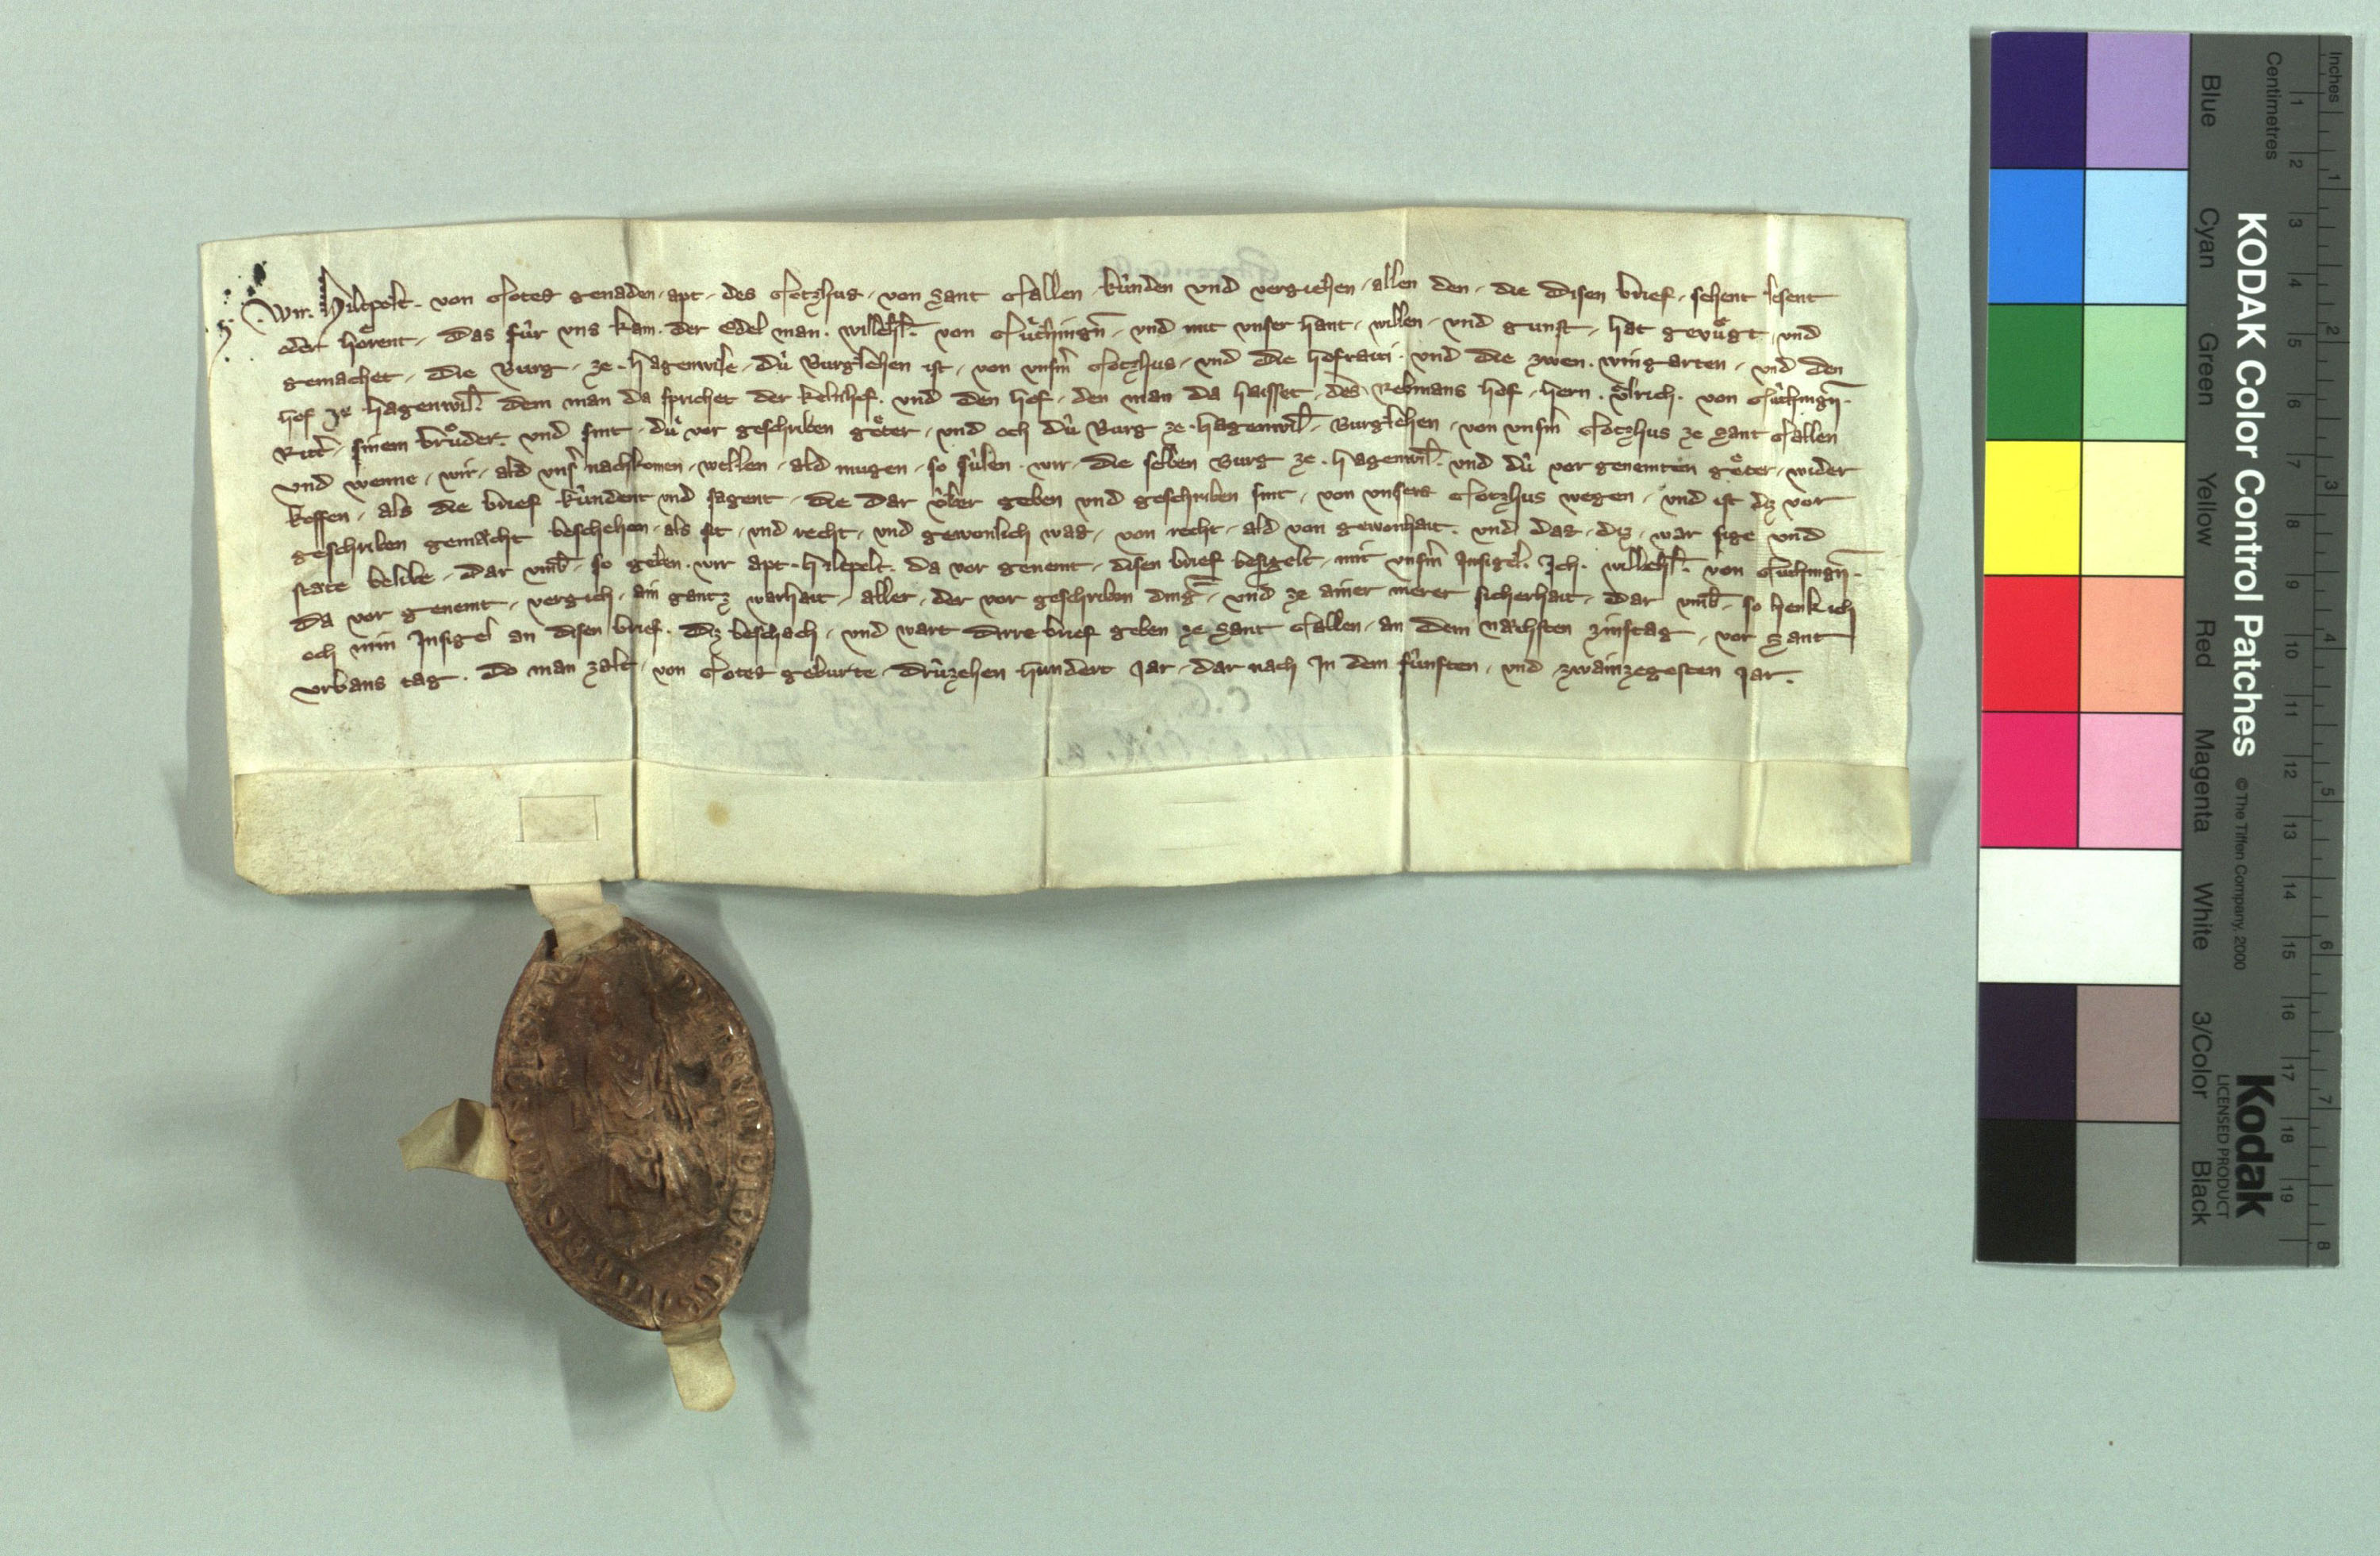 Wir. Hiltpolt. von Gotes genaden. apt. des Gotzhus. von Sant Gallen. kúnden und vergiehen. allen den. die disen brief. sehent lesent
oder hoͤrent. Das fúr uns kam. der Edel man. Willeh̄. von Guͤttingn̄. und mit unser hant. willen. und gunst. hat gevuͤgt und
gemachet. Die Burg. ze. hagenwile. dú Burglehen ist. von unsm̄ Gotzhus. und die hofraiti. und die zwen. wingarten. und den
hof ze hagenwil̄. dem man da sprichet der kelnhof. und den hof. den man da haisset. des Rebmans hof. hern. Uͦlrich. von Gúttingn̄.
Ritt̄. sinem bruͦder. und sint. dú vor geschriben guͤter. und och dú Burg ze. hagenwil̄. Burglehen. von unsm̄ Gotzhus ze Sant Gallen
und wenne. wir. ald uns̄ nachkomen. wellen. ald mugen. so súlen. wir. die selben Burg ze. hagenwil̄. und dú vor genemten guͤter. wider
koffen. als die brief kúndent und sagent. die dar úber geben und geschriben sint. von unsers Gotzhus wegen. und ist dz vor
geschriben gemächt beschehen. als sit. und recht. und gewonlich was. von recht. ald von gewonhait. und das. diz. war sige und
state belibe. Dar umb̄. so geben. wir apt. hiltpolt. da vor genemt. disen brief besigelt. mit unsm̄ Insigel. Ich. Willeh̄. von Guͤttingn̄.
da vor genemt. vergich. ain gantz warhait. aller. der vor geschriben dinḡ. und ze ainer merer sicherhait. dar umb̄. so henk ich
och min Insigel an disen brief. Diz beschach. und wart dirre brief geben ze Sant Gallen. an dem nächsten zinstag. vor Sant
Urbans tag. Do man zalt. von Gotes geburte. drúzehen hundert Jar. dar nach In dem fúnften. und zwainzegosten Jar.
Inches
Centimetres
1 2 3 4 5 6 7 8
1 2 3 4 5 6 7 8 9 10 11 12 13 14 15 16 17 18 19
KODAK Color Control Patches
© The Tiffen Company, 2000
Kodak
LICENSED PRODUCT
Blue
Cyan
Green
Yellow
Red
Magenta
White
3/Color
Black